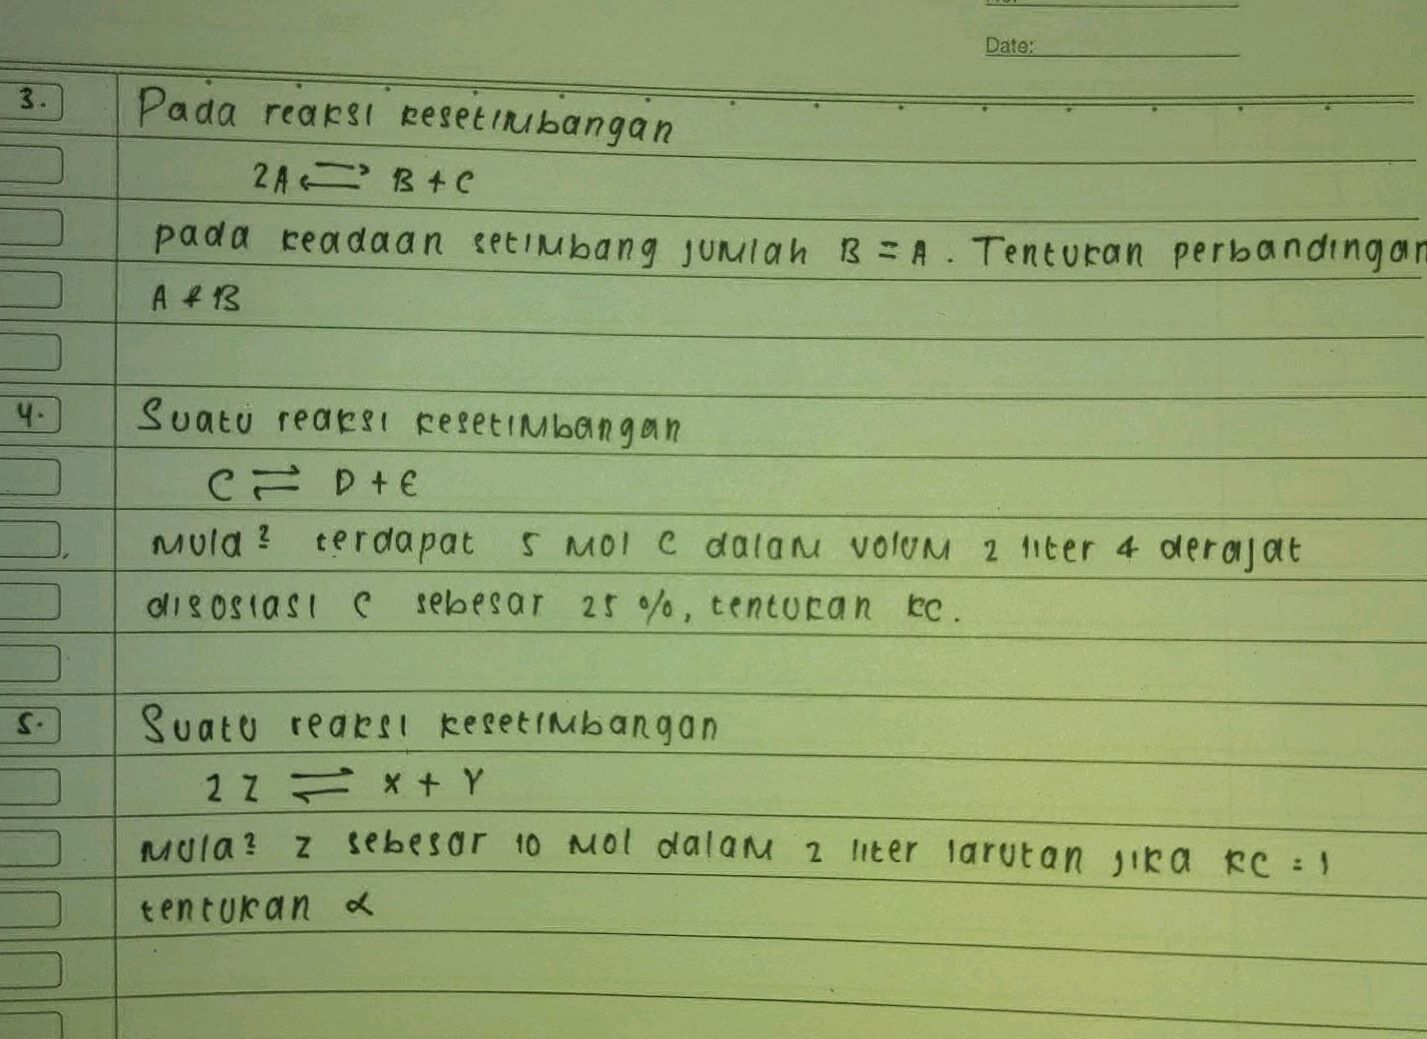 Date:
3. Pada reaksi kesetimbangan
2A ⇌ B + C
pada keadaan setimbang jumlah B = A. Tentukan perbandingan
A & B
4. Suatu reaksi kesetimbangan
C ⇌ D + E
mula² terdapat 5 mol C dalam volum 2 liter & derajat
disosiasi C sebesar 25 %, tentukan kc.
5. Suatu reaksi kesetimbangan
2 Z ⇌ X + Y
mula² Z sebesar 10 mol dalam 2 liter larutan jika kc = 1
tentukan α